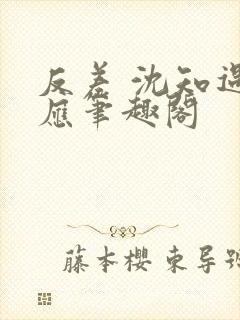 反差 沈知遇
应笔趣阁
藤本樱 东导